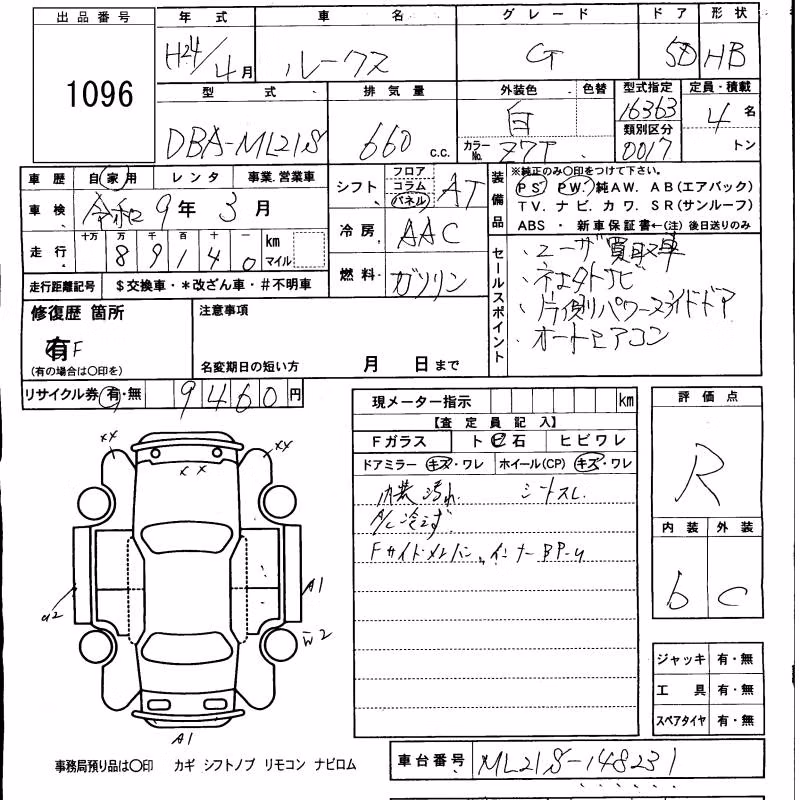 出品番号 年式 車名 グレード ドア 形状
1096 H24/4月 ルークス G 5D HB
型式 排気量 外装色 色替 型式指定 定員・積載
DBA-ML21S 660 c.c. 白 16363 4名
カラーNo. Z7T 類別区分 0017 トン
車歴 自家用 レンタ 事業.営業車
車検 令和9年3月
走行 十万 万 千 百 十 一 km マイル
8 9 1 4 0
走行距離記号 $交換車・*改ざん車・#不明車
シフト フロア コラム パネル AT
冷房 AAC
燃料 ガソリン
装備品
※純正のみ〇印をつけて下さい。
PS PW. 純AW. AB(エアバック)
TV. ナビ. カワ. SR(サンルーフ)
ABS ・ 新車保証書←(注) 後日送りのみ
セールスポイント
・ユーザ買取車
・ネオタトナビ
・片側パワースライドドア
・オートエアコン
修復歴 箇所
有 F
(有の場合は〇印を)
注意事項
名変期日の短い方 月 日まで
リサイクル券 有・無 9460円
現メーター指示 km
【査定員記入】
Fガラス ト ビ 石 ヒビワレ
ドアミラー キズ・ワレ ホイール(CP) キズ・ワレ
内装汚れ シートスレ
A/C冷えず
Fサイドメンバー、インナーBP-u
評価点
R
内装 外装
b C
XX XX
X X
A1
a2
W2
A1
ジャッキ 有・無
工具 有・無
スペアタイヤ 有・無
事務局預り品は〇印 カギ シフトノブ リモコン ナビロム
車台番号 ML21S-148231